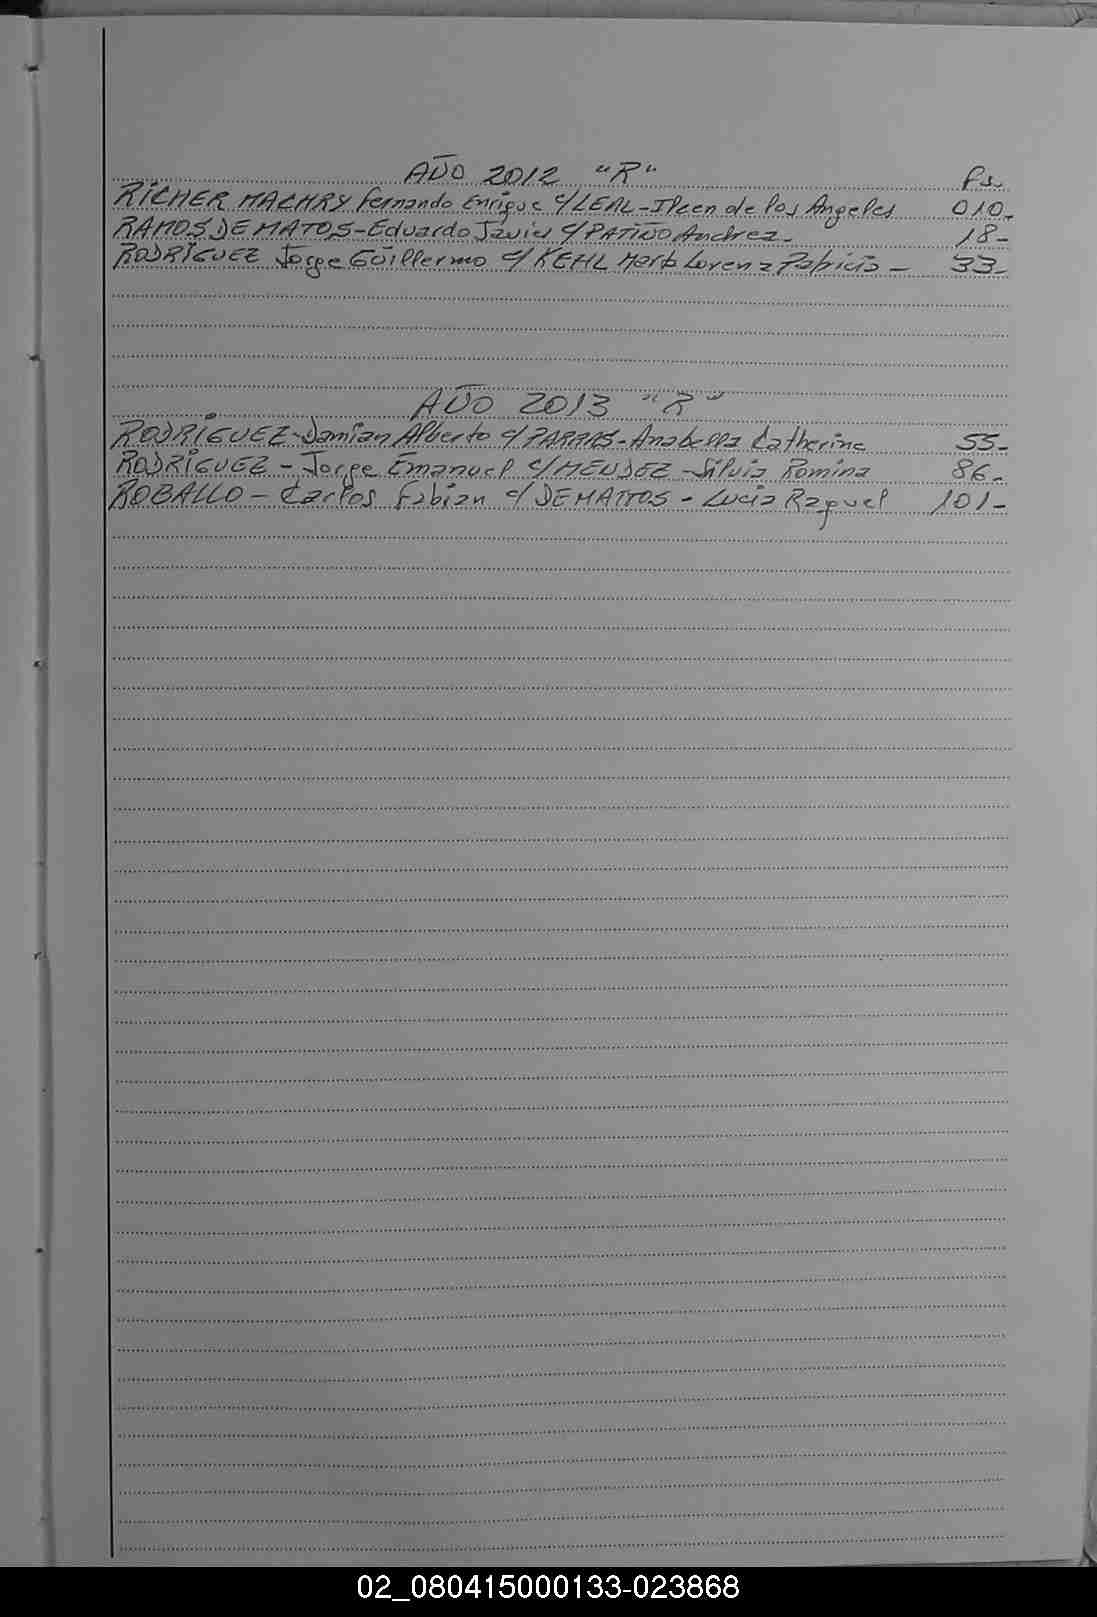 AÑO 2012 "R" Fs.
RICHER MACHRY Fernando Enrique c/ LEAL - Ileen de los Angeles 010-
RAMOS DE MATOS - Eduardo Javier c/ PATIÑO Andrea - 18-
RODRIGUEZ Jorge Guillermo c/ KEHL Lorena - 33-
AÑO 2013 "R"
RODRIGUEZ - Damian Alberto c/ PARRAS - Anabella Catherine 55-
RODRIGUEZ - Jorge Emanuel c/ MENDEZ - Silvia Romina 86-
ROBALLO - Carlos Fabian c/ DE MATTOS - Lucia Raquel 101-
02_080415000133-023868